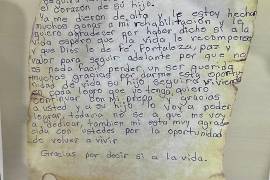 seguirá
el corazón de su hijo.
Ya me dieron de alta y le estoy hechan
muchas ganas a mi rehabilitación y
quiero agradecer por haber dicho si a la
vida espero que la vida lo recompense
que Dios le de to, fortaleza, paz y
valor para seguir adelante por que no
es nada facil perder un ser querido
muchas gracias por darme esta oportu
nidad de vida su hijo seguira viviendo
en cada logro que yo tenga, quiero
continuar con mi prepa y gracias
a usted y a su hijo lo voy a poder
lograr, todavia no se a que me voy
a dedicar, tambien mi esta muy agrade
sida con ustedes por la oportunidad
de volver a vivir
Gracias por decir si a la vida.